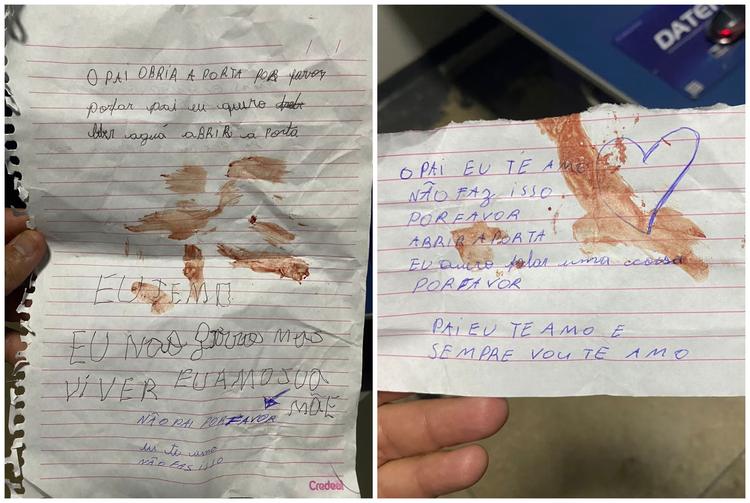 O PAI OBRIR A PORTA POR favor
porfar pai eu quiro
aguá ABRIR a Porta
EU TEMO
EU NÃO QUIRO MAS
VIVER EU AMO SUA
MÃE
NÃO PAI PORFAVOR
eu te amo
NÃO FAS ISSO
Credeal
DATE
O PAI EU TE AMO
NÃO FAZ ISSO
PORFAVOR
ABRIR A PORTA
EU quiro falar uma coosa
PORFAVOR
PAI EU TE AMO E
SEMPRE VOU TE AMO